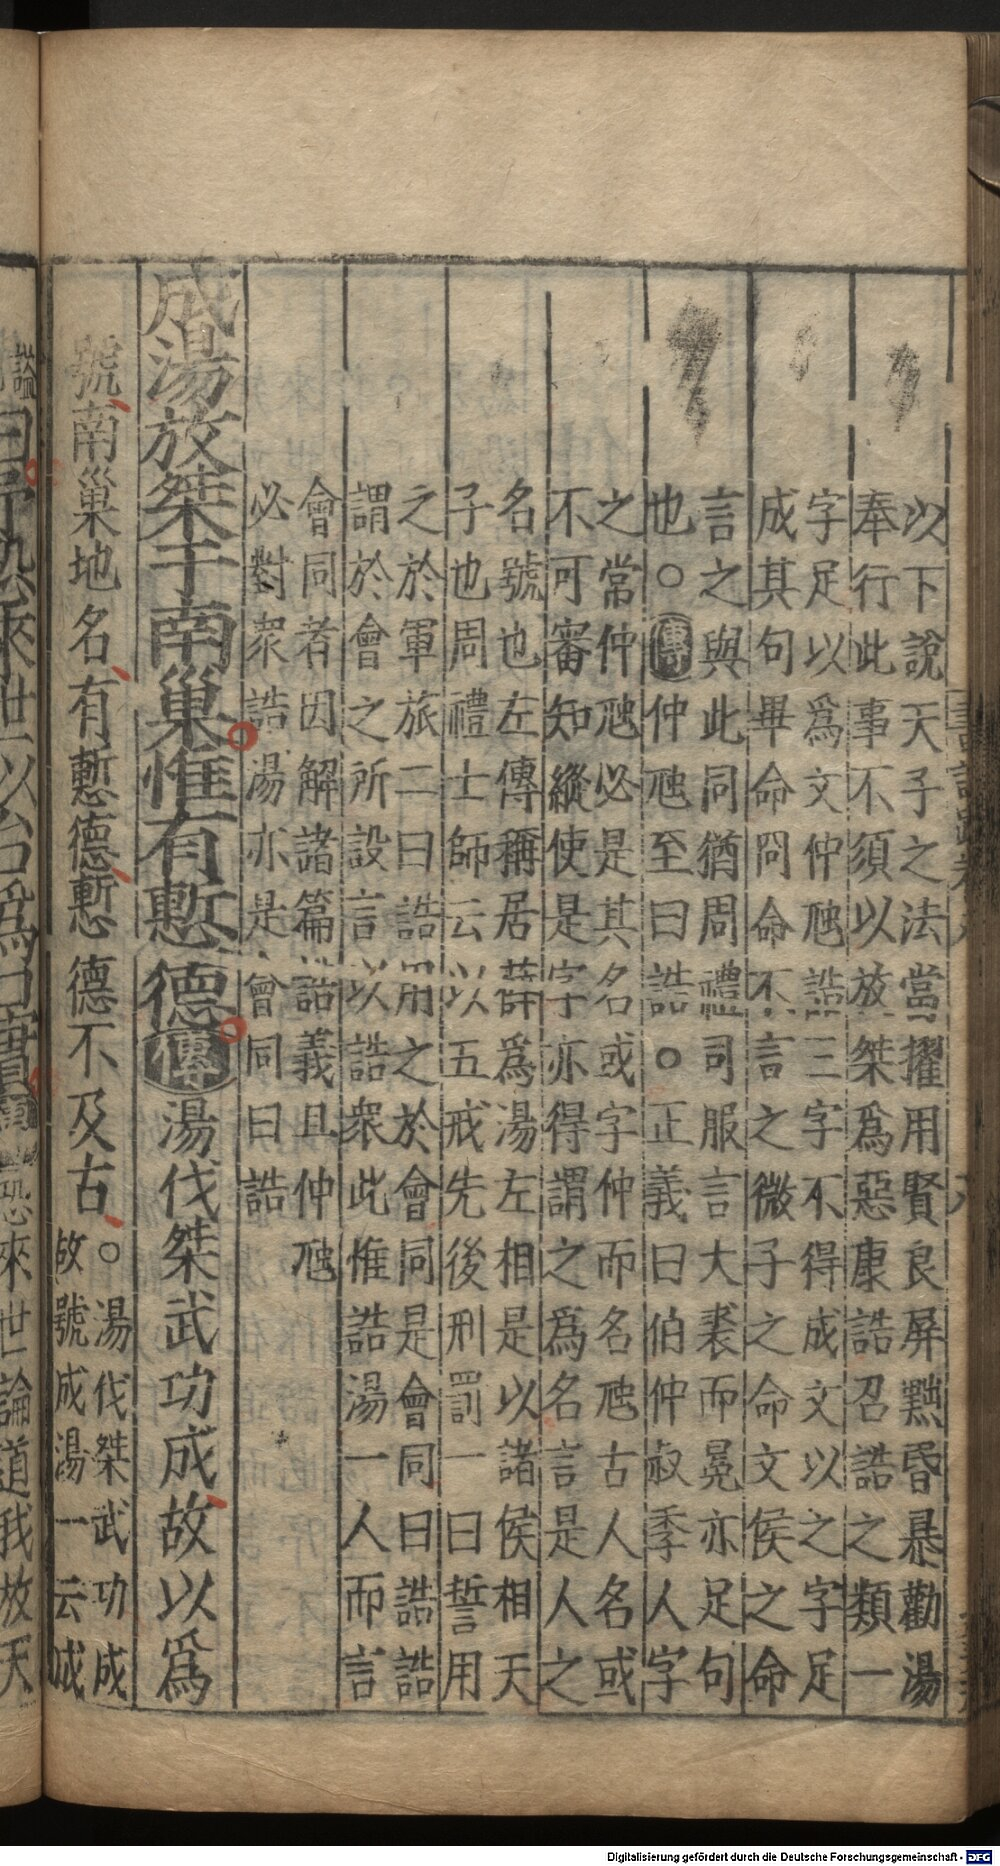 以下說天子之法當擢用賢良屏黜昏暴勸湯
奉行此事不須以放桀爲惡康誥召誥之類一
字足以爲文仲虺誥三字不得成文以之字足
成其句畢命冏命不言之微子之命文侯之命
言之與此同猶周禮司服言大裘而冕亦足句
也○傳仲虺至曰誥○正義曰伯仲叔季人字
之常仲虺必是其名或字仲而名虺古人名或
不可審知縱使是字亦得謂之爲名言是人之
名號也左傳稱居薛爲湯左相是以諸侯相天
子也周禮士師云以五戒先後刑罰一曰誓用
之於軍旅二曰誥用之於會同是會同曰誥誥
謂於會之所設言以誥衆此惟誥湯一人而言
會同者因解諸篇誥義且仲虺
必對衆誥湯亦是會同曰誥
成湯放桀于南巢惟有慙德傳湯伐桀武功成故以爲
號南巢地名有慙德慙德不及古○湯伐桀武功成
故號成湯一云成
謚
曰予恐來世以台爲口實傳恐來世論道我放天
Digitalisierung gefördert durch die Deutsche Forschungsgemeinschaft - DFG